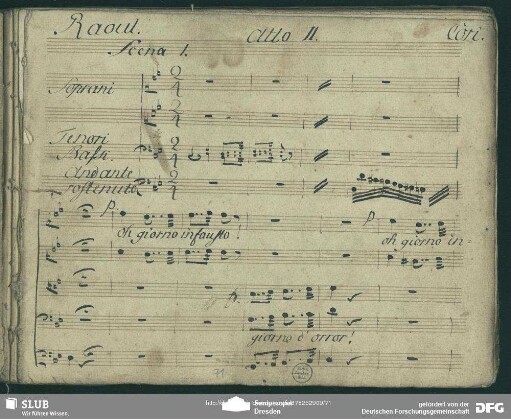 Raoul. Atto II. Còri.
Scena 1.
Soprani
Tenori
Bassi.
Andante
sostenuto
p.
oh giorno infausto!
p.
oh giorno in=
giorno d'orror!
71
SLUB
Wir führen Wissen.
Dresden
gefördert von der
Deutschen Forschungsgemeinschaft
DFG